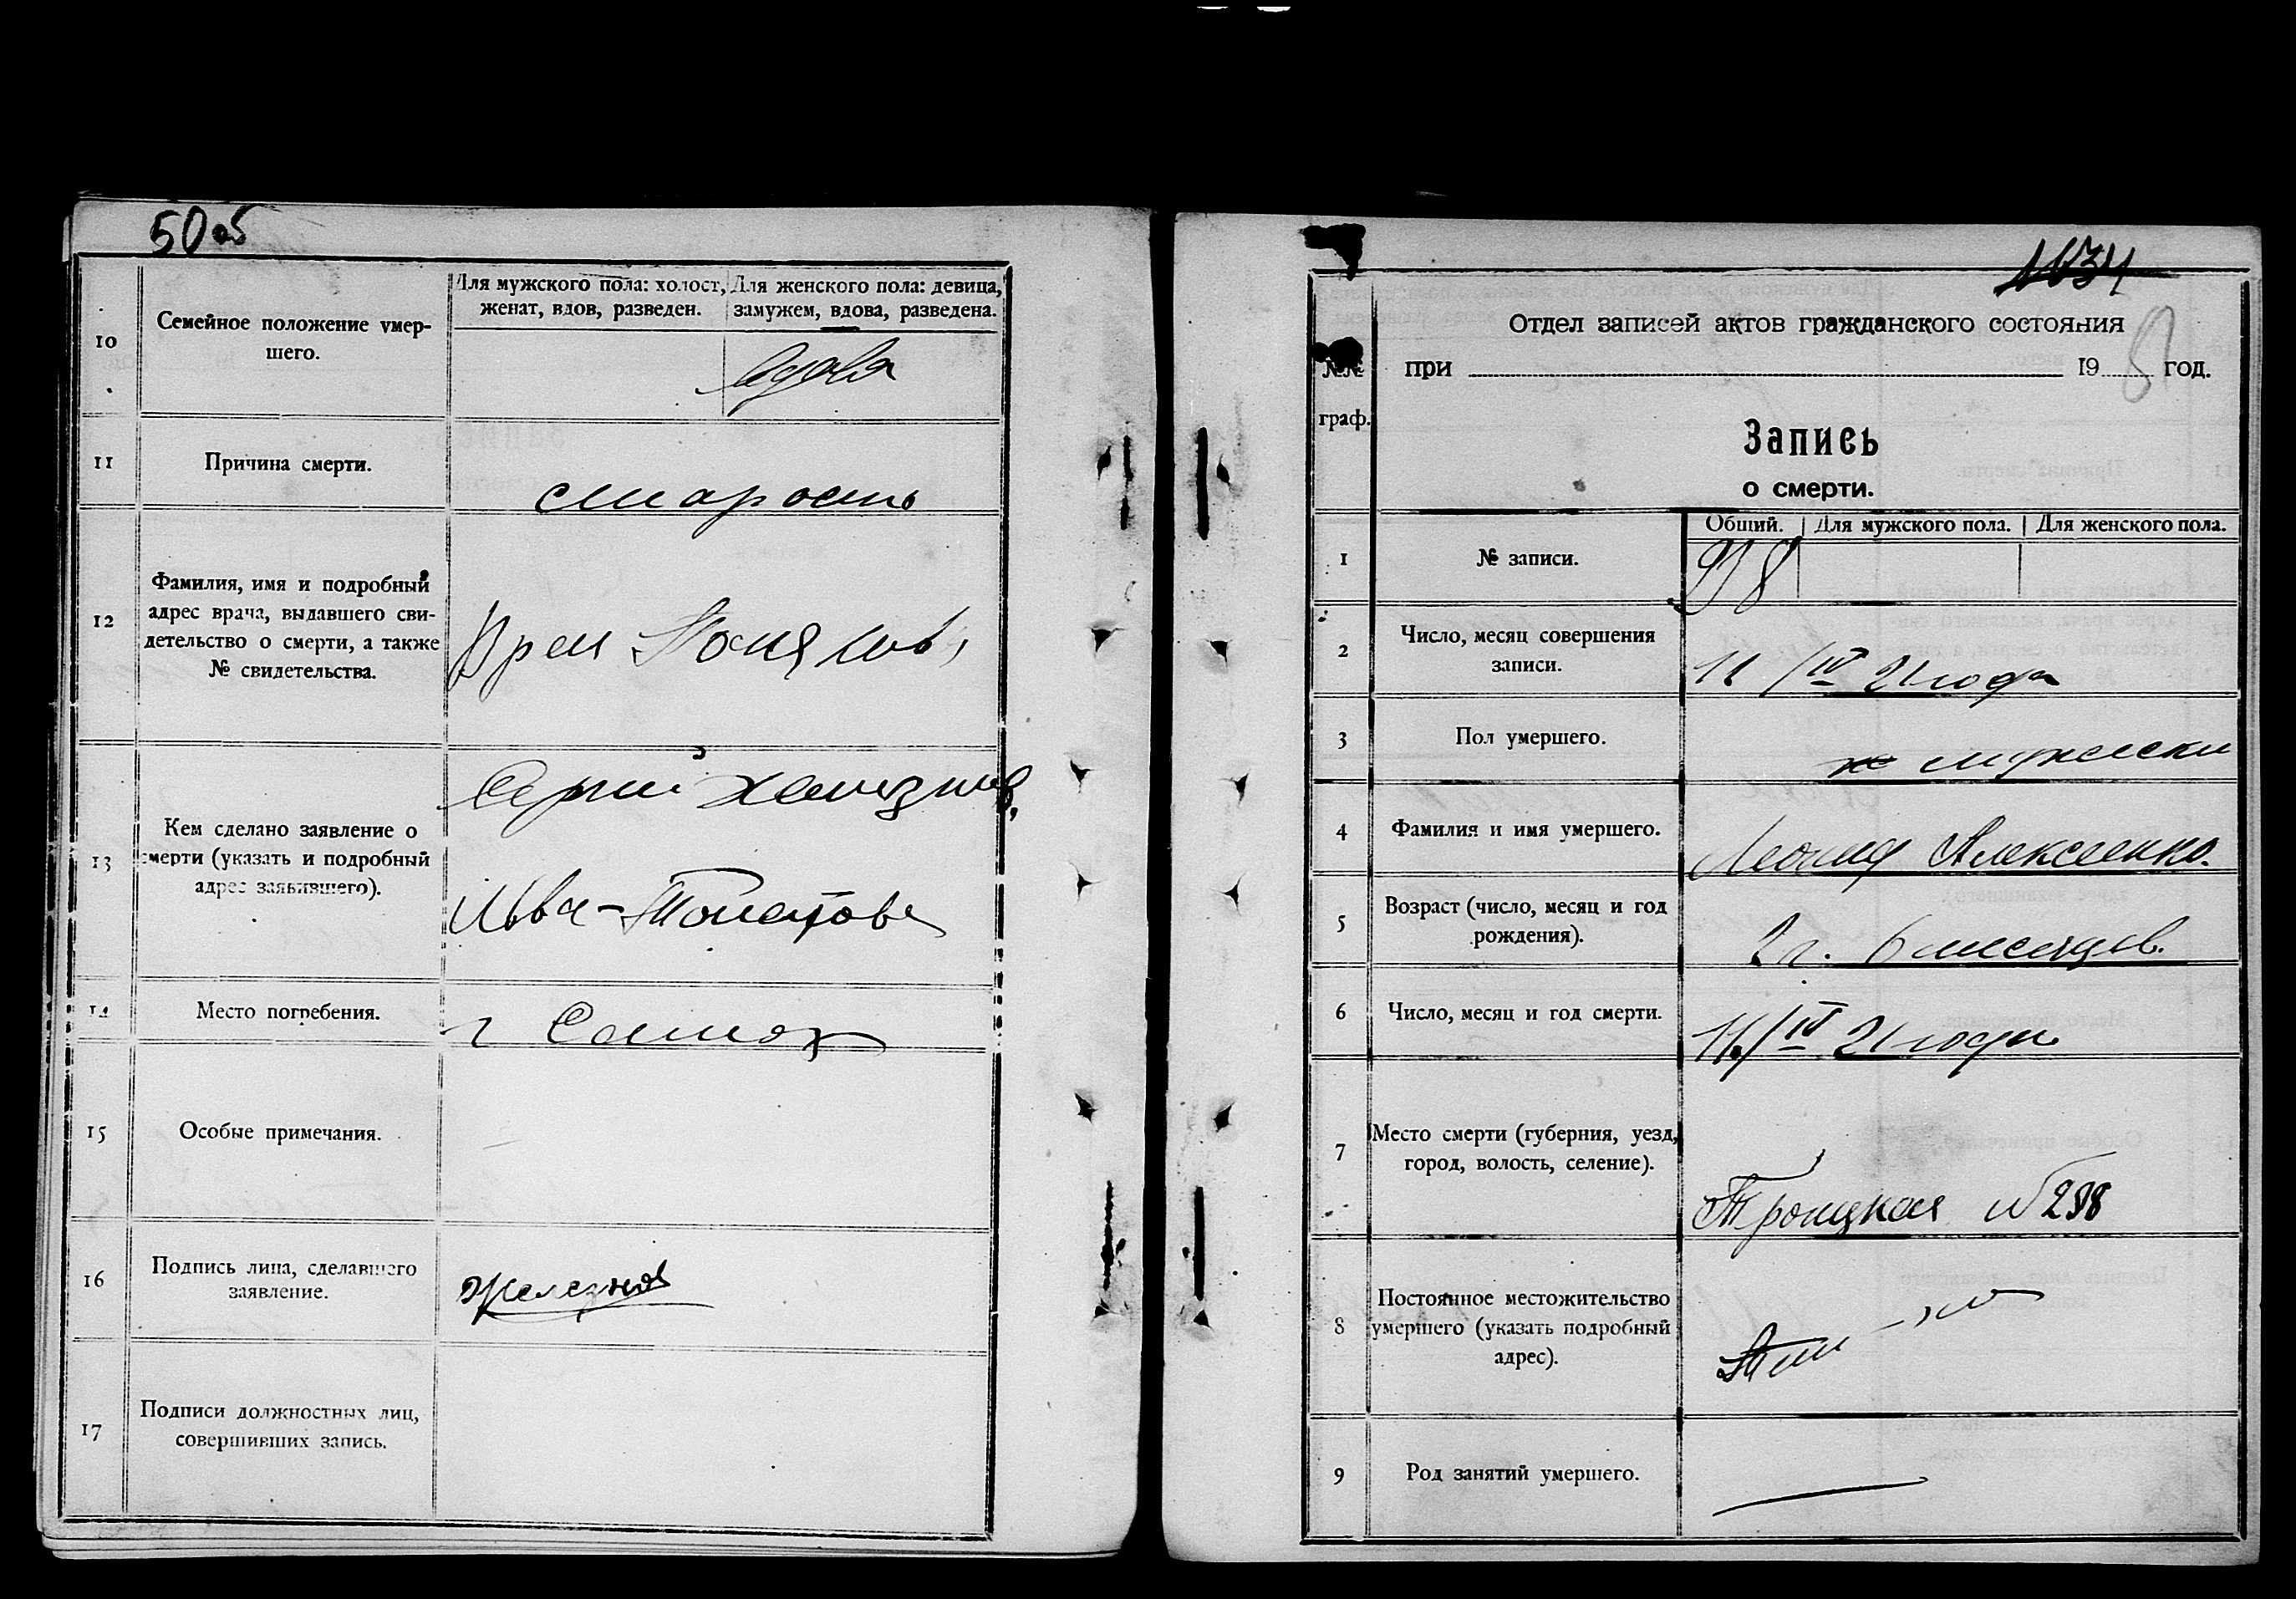 50 об
10
Семейное положение умер-
шего.
Для мужского пола: холост,
женат, вдов, разведен.
Для женского пола: девица,
замужем, вдова, разведена.
вдова
11
Причина смерти.
старость
12
Фамилия, имя и подробный
адрес врача, выдавшего сви-
детельство о смерти, а также
№ свидетельства.
Врач
13
Кем сделано заявление о
смерти (указать и подробный
адрес заявившего).
Сергий
14
Место погребения.
г
15
Особые примечания.
16
Подпись лица, сделавшего
заявление.
Железнов
17
Подписи должностных лиц,
совершивших запись.
1634
Отдел записей актов гражданского состояния
№№
граф.
при 19 год.
Запись
о смерти.
Общий. Для мужского пола. Для женского пола.
1
№ записи.
938
2
Число, месяц совершения
записи.
11/IV 21 года
3
Пол умершего.
мужески
4
Фамилия и имя умершего.
Леонид Алексеенко.
5
Возраст (число, месяц и год
рождения).
2 г. 6 месяцев.
6
Число, месяц и год смерти.
11/IV 21 года
7
Место смерти (губерния, уезд,
город, волость, селение).
Троицкая №298
8
Постоянное местожительство
умершего (указать подробный
адрес).
9
Род занятий умершего.